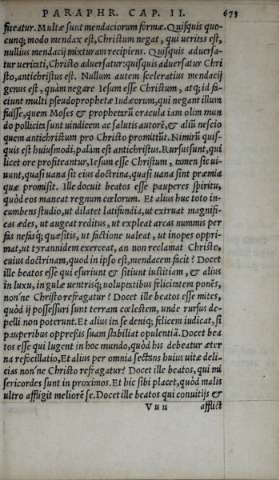 PARAPHR. CAP. II. 673
ficeatur. Multæ sunt mendaciorum formæ. Quisquis quo-
cunq; modo mendax est, Christum negat, qui ueritas est,
nullius mendacij mixturam recipiens. Quisquis aduersa-
tur ueritati, Christo aduersatur: quisquis aduersatur Chri
sto, antichristus est. Nullum autem sceleratius mendacij
genus est, quàm negare Iesum esse Christum, atq; id fa-
ciunt multi pseudoprophetæ Iudæorum, qui negant illum
fuisse, quem Moses & prophetarũ oracula iam olim mun
do pollicita sunt uindicem ac salutis autorẽ, & aliũ nescio
quem antichristum pro Christo promittũt. Nimirũ quis-
quis est huiusmodi, palàm est antichristus. Rursus sunt, qui
licet ore profiteantur, Iesum esse Christum, tamen sic ui-
uunt, quasi uana sit eius doctrina, quasi uana sint præmia
quæ promisit. Ille docuit beatos esse pauperes spiritu,
quòd eos maneat regnum cœlorum. Et alius huc toto in-
cumbens studio, ut dilatet latifundia, ut extruat magnifi-
cas ædes, ut augeat reditus, ut expleat arcas nummis per
fas nefasq; quæsitis, ut factione ualeat, ut inopes oppri-
mat, ut tyrannidem exerceat, an non reclamat Christo,
cuius doctrinam, quod in ipso est, mendacem facit? Docet
ille beatos esse qui esuriunt & sitiunt iustitiam, & alius
in luxu, in gulæ uentrisq; uoluptatibus felicitatem ponẽs,
non'ne Christo refragatur? Docet ille beatos esse mites,
quòd ij possessuri sunt terram cœlestem, unde rursus de-
pelli non poterunt. Et alius in se deniq; felicem iudicat, si
pauperibus oppressis suam stabiliat opulentiã. Docet bea
tos esse qui lugent in hoc mundo, quòd his debeatur æter
na refocillatio, Et alius per omnia sectans huius uitæ deli-
cias non'ne Christo refragatur? Docet ille beatos, qui mi
sericordes sunt in proximos. Et hic sibi placet, quòd malis
ultro affligit meliorẽ se. Docet ille beatos qui conuitijs &
Vuu afflict